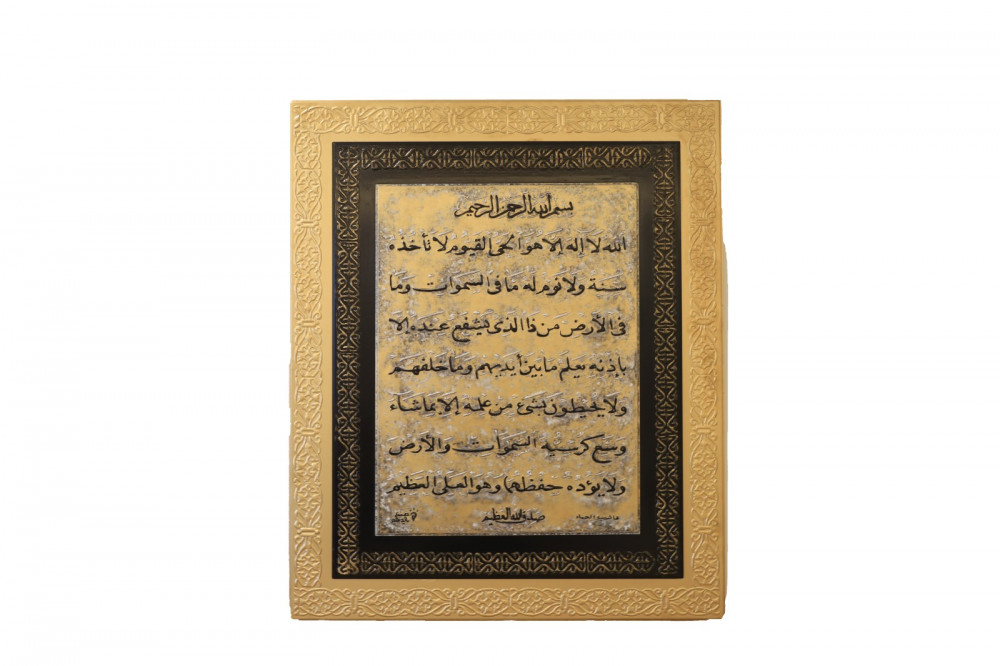 بسم الله الرحمن الرحيم
الله لا إله إلا هو الحي القيوم لا تأخذه
سنة ولا نوم له ما في السموات وما
في الأرض من ذا الذي يشفع عنده إلا
بإذنه يعلم ما بين أيديهم وما خلفهم
ولا يحيطون بشئ من علمه إلا بما شاء
وسع كرسيه السموات والأرض
ولا يؤده حفظهما وهو العلي العظيم
صدق الله العظيم